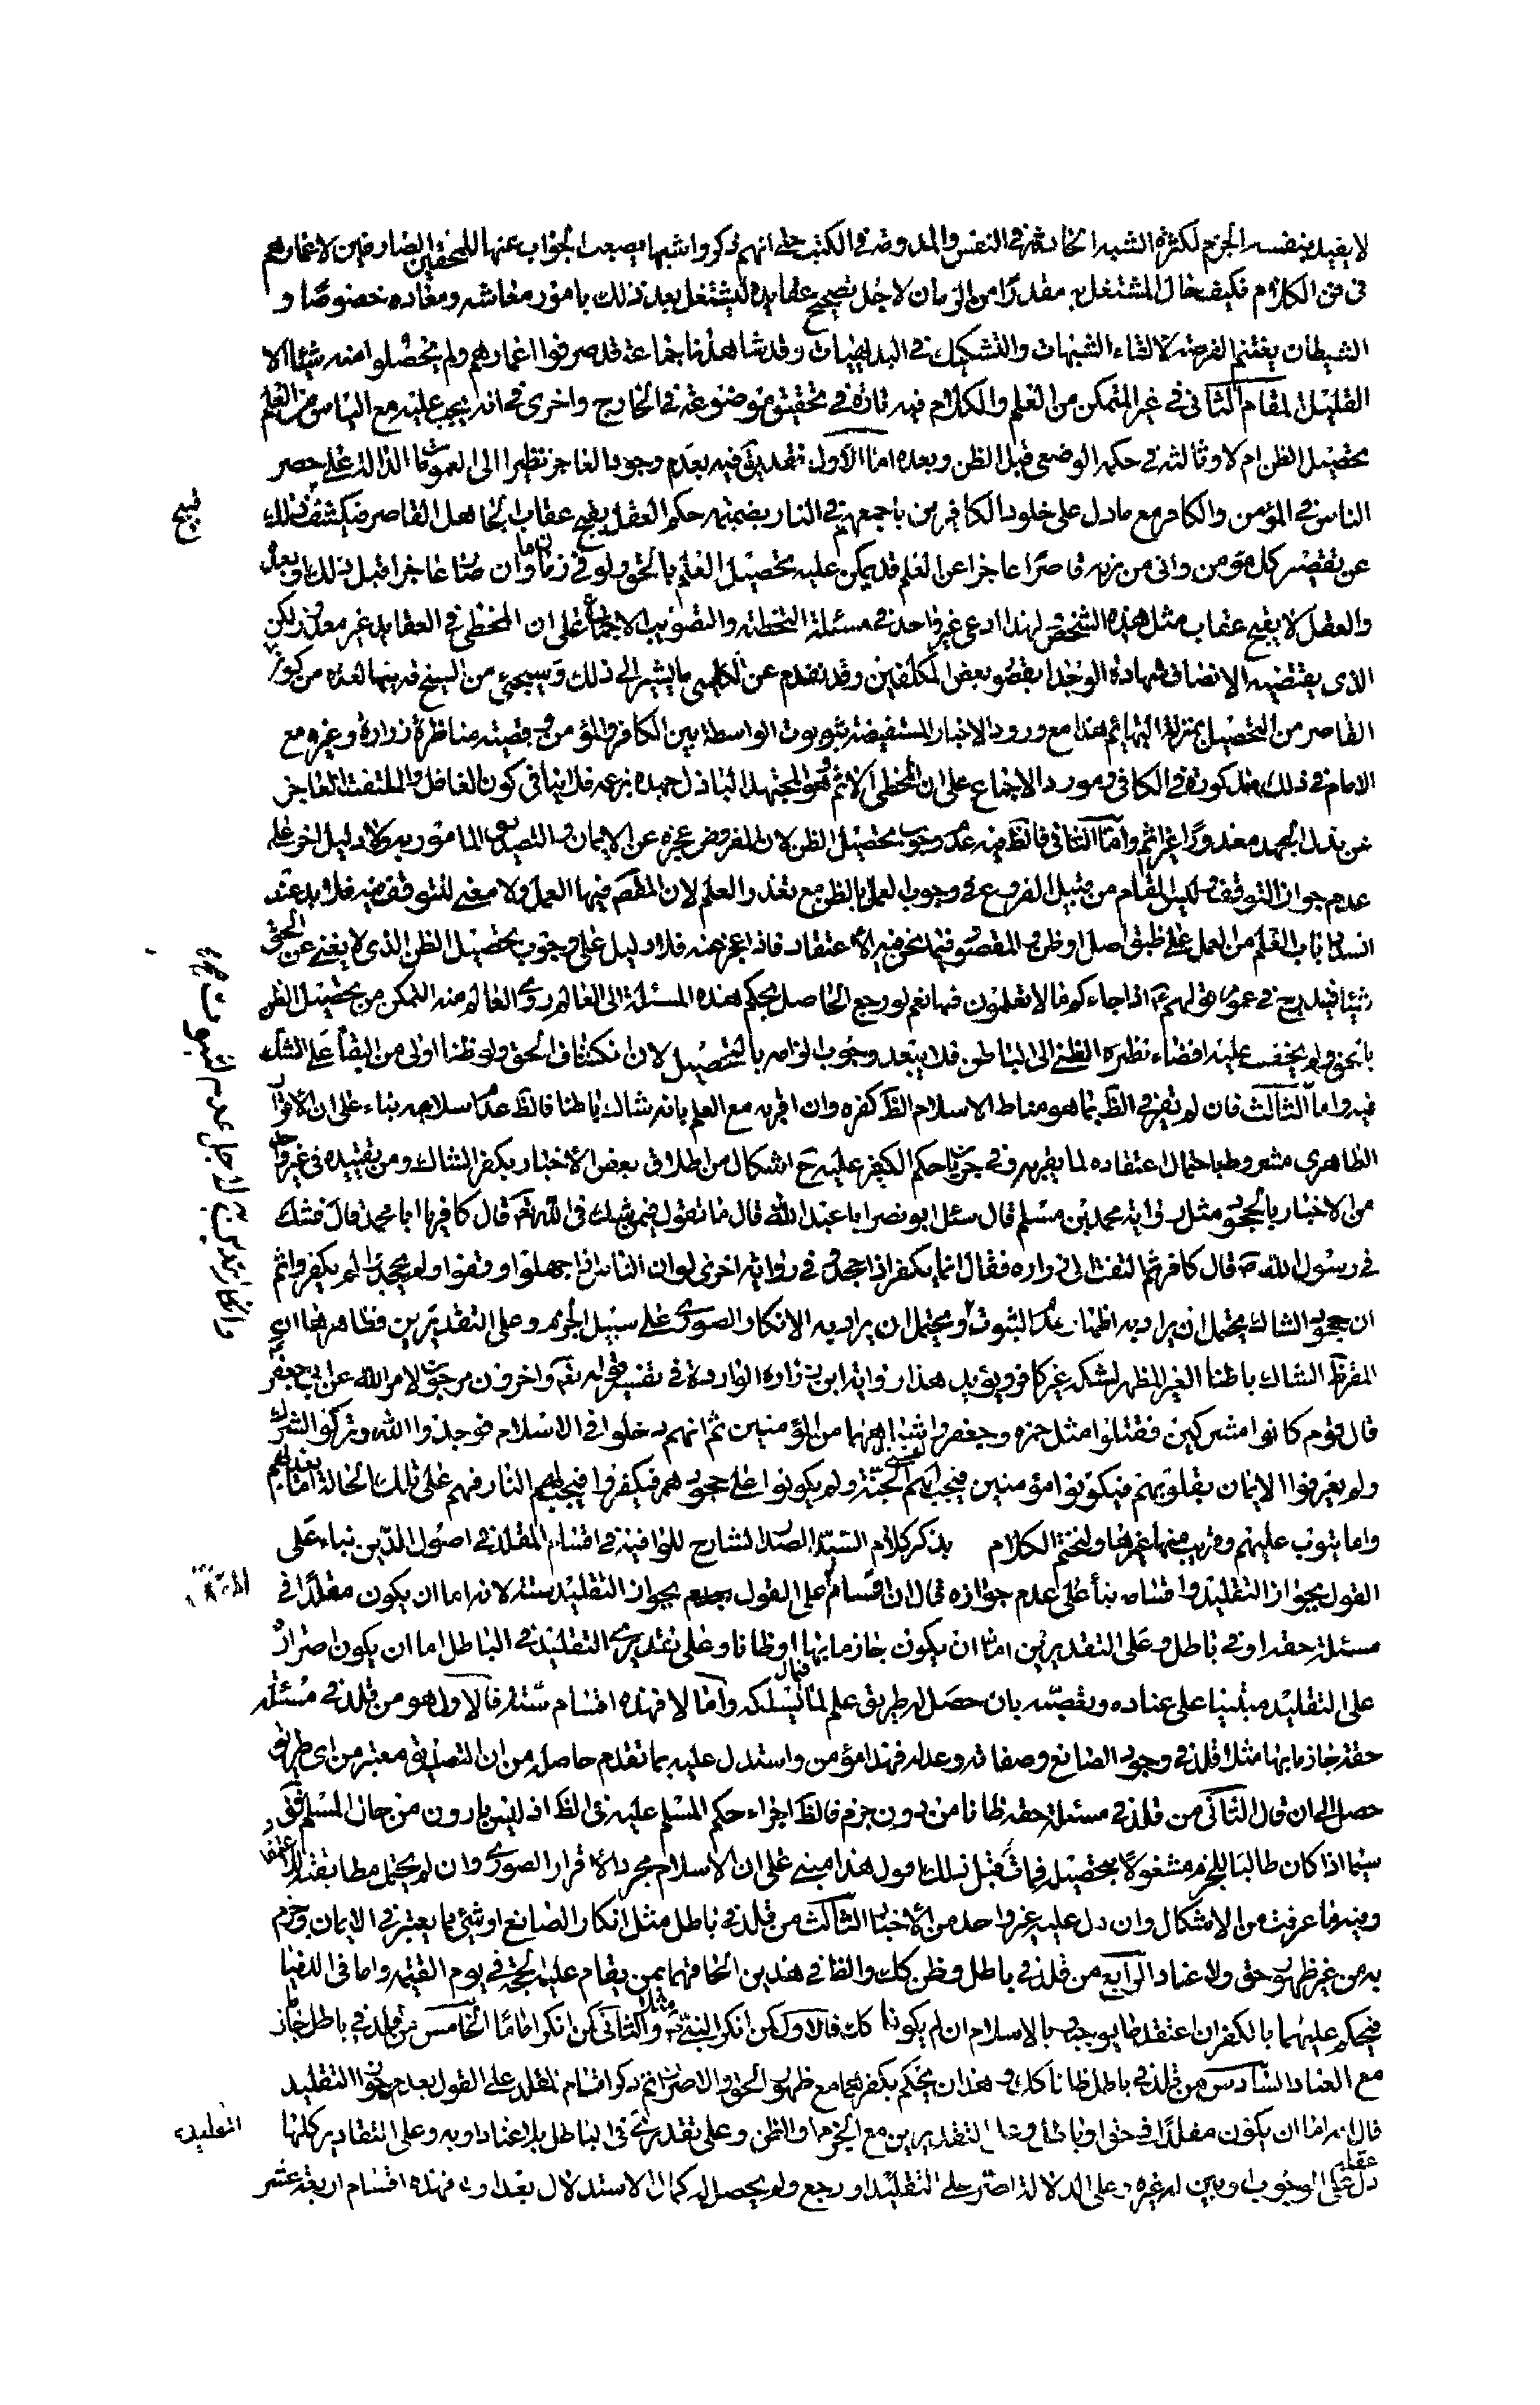 لا يفيد بنفسه الجزم لكثرة الشبه الحادثة في النفس والمدونة في الكتب حتى انهم ذكروا شبها يصعب الجواب عنها للمحققين الصارفين لاعمارهم
في فن الكلام فكيف حال المشتغل به مقدارا من الزمان لاجل تصحيح عقايده ليشتغل بعد ذلك بامور معاشه ومعاده خصوصا و
الشيطان يغتنم الفرصة لالقاء الشبهات والتشكيك في البديهيات وقد شاهدنا جماعة قد صرفوا اعمارهم ولم يحصلوا منه شيئا الا
القليل المقام الثاني في غير المتمكن من العلم والكلام فيه تارة في تحقيق موضوعه في الخارج واخرى في انه يجب عليه مع الياس من العلم
تحصيل الظن ام لا وثالثة في حكمه الوضعي قبل الظن وبعده اما الاول فقد يق فيه بعدم وجود العاجز نظرا الى العمومات الدالة على حصر
الناس في المؤمن والكافر مع ما دل على خلود الكافرين باجمعهم في النار بضميمة حكم العقل بقبح عقاب الجاهل القاصر فيكشف ذلك
قبح
عن تقصير كل مؤمن وانى من نراه قاصرا عاجزا عن العلم قد يمكن عليه تحصيل العلم بالحق ولو في زمان ما وان صار عاجزا قبل ذلك او بعده
والعقل لا يقبح عقاب مثل هذا الشخص لهذا ادعى غير واحد في مسئلة التخطئة والتصويب الاجماع على ان المخطئ في العقايد غير معذور لكن
الذى يقتضيه الانصاف شهادة الوجدان بقصور بعض المكلفين وقد تقدم عن الكليني ما يشير الى ذلك وسيجئ من الشيخ قده من كون
القاصر من التحصيل بمنزلة البهائم هذا مع ورود الاخبار المستفيضة بثبوت الواسطة بين الكافر والمؤمن وقضية مناظرة زرارة وغيره مع
الامام في ذلك مذكورة في الكافي ومورد الاجماع على ان المخطئ اثم هو المجتهد الباذل جهده بزعمه فلا ينافي كون الغافل والملتفت العاجز
عن بذل الجهد معذورا غير اثم واما الثاني فالظ فيه عدم وجوب تحصيل الظن لان المفروض عجزه عن الايمان والتصديق المامور به ولا دليل اخر على
عدم جواز التوقف وليس المقام من قبيل الفروع في وجوب العمل بالظن مع تعذر العلم لان المقصم فيها العمل ولا معنى للتوقف فيه فلا بد عند
انسداد باب العلم من العمل على طبق اصل او ظن والمقصود فيما نحن فيه الاعتقاد فاذا عجز عنه فلا دليل على وجوب تحصيل الظن الذى لا يغنى عن الحق
شيئا فيندرج في عموم قولهم ع اذا جاءكم ما لا تعلمون فها نعم لو رجع الحاصل بحكم هذه المسئلة الى العالم وراى العالم منه التمكن من تحصيل الظن
بالحق ولم يخف عليه افضاء نظره الظنى الى الباطل فلا يبعد وجوب الزامه بالتحصيل لان انكشاف الحق ولو ظنا اولى من البقاء على الشك
فيه واما الثالث فان لم يقر في الظ بما هو مناط الاسلام الظ كفره وان اقر به مع العلم بانه شاك باطنا فالظ عدم اسلامه بناء على ان الاقرار
الظاهرى مشروط باحتمال اعتقاده لما يقر به وفي جريان حكم الكفر عليه ح اشكال من اطلاق بعض الاخبار بكفر الشاك ومن تقييده في غير واحد
من الاخبار بالجحود مثل رواية محمد بن مسلم قال سئل ابو بصير ابا عبد الله قال ما تقول فيمن شك في الله تعم قال كافر يا ابا محمد قال فشك
في رسول الله ص قال كافر ثم التفت الى زرارة فقال انما يكفر اذا جحد وفي رواية اخرى لو ان الناس اذا جهلوا وقفوا ولم يجحدوا لم يكفروا ثم
ان جحود الشاك يحتمل ان يراد به اظهار عدم الثبوت ويحتمل ان يراد به الانكار الصورى على سبيل الجزم وعلى التقديرين فظاهرها ان
وانكار التدين به لاجل عدم الثبوت
المقر ظ الشاك باطنا الغير المظهر لشكه غير كافر ويؤيد هذا رواية ابن زرارة الواردة في تفسير قوله تعم واخرون مرجون لامر الله عن ابي جعفر
قال قوم كانوا مشركين فقتلوا مثل حمزة وجعفر واشباههما من المؤمنين ثم انهم دخلوا في الاسلام فوحدوا الله وتركوا الشرك
ولم يعرفوا الايمان بقلوبهم فيكونوا مؤمنين فيجب لهم الجنة ولم يكونوا على جحودهم فيكفروا فيجب لهم النار فهم على تلك الحالة اما يعذبهم
واما يتوب عليهم وقريب منها غيرها ولنختم الكلام بذكر كلام السيد الصدر الشارح للوافية في اقسام المقلد في اصول الدين بناء على
القول بجواز التقليد واقسامه بناء على عدم جوازه قال ان اقسام المقلد على القول بجواز التقليد ستة لانه اما ان يكون مقلدا في
المقلد
مسئلة حقة او في باطل وعلى التقديرين اما ان يكون جازما بها او ظانا وعلى تقديرى التقليد في الباطل اما ان يكون اصراره
على التقليد مبتنيا على عناده وتعصبه بان حصل له طريق علم لما سلكه واما لا فهذه اقسام ستة فالاول هو من قلد في مسئلة
حقة جازما بها مثلا قلد في وجود الصانع وصفاته وعدله فهذا مؤمن واستدل عليه بما تقدم حاصله من ان التصديق معتبر من اى طريق
حصل الى ان قال الثاني من قلد في مسئلة حقة ظانا من دون جزم فالظ اجراء حكم المسلم عليه في الظ اذ ليس بادون من حال المسلم فق
سيما اذا كان طالبا للجزم مشغولا بتحصيله فمات قبل ذلك اقول هذا مبنى على ان الاسلام مجرد الاقرار الصورى وان لم يحتمل مطابقته للاعتقاد
وفيه ما عرفت من الاشكال وان دل عليه غير واحد من الاخبار الثالث من قلد في باطل مثل انكار الصانع او شئ مما يعتبر في الايمان وجزم
به من غير ظهور حق ولا عناد الرابع من قلد في باطل وظن كك والظ في هذين الحاقهما بمن يقام عليه الحجة في يوم القيمة واما في الدنيا
فيحكم عليهما بالكفر ان اعتقدا ما يوجبه وبالاسلام ان لم يكونا كك فالاول كمن انكر النبي ص مثلا والثاني كمن انكر اماما الخامس من قلد في باطل جازما
مع العناد السادس من قلد في باطل ظانا كك وهذان يحكم بكفرهما مع ظهور الحق والاصرار ثم ذكر اقسام المقلد على القول بعدم جواز التقليد
قال انه اما ان يكون مقلدا في حق او باطل وعلى التقديرين مع الجزم او الظن وعلى تقديرى التقليد في الباطل بلا عناد او به وعلى التقادير كلها
التقليد
دل عقله على الوجوب او بين له غيره وعلى الدلالة اصر على التقليد او رجع ولم يحصل له كمال الاستدلال بعد او لا فهذه اقسام اربعة عشر